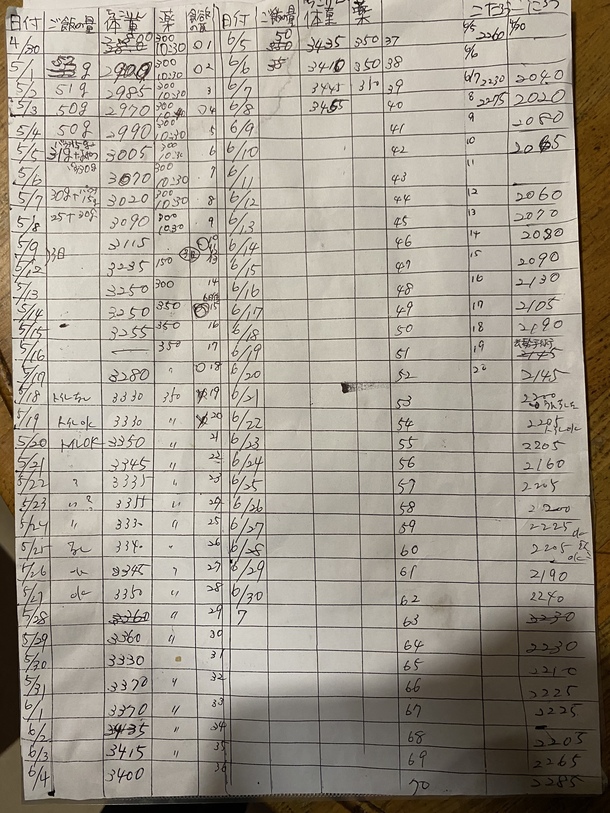 日付 ご飯の量 体重 薬 日付 ご飯の量 体重 薬
4/30 300 10:30 01 6/5 50 3435 350 37 6/5 2260 4/30
5/1 g 2900 300 10:30 02 6/6 35 3410 350 38 6/6
5/2 51g 2985 300 10:30 3 6/7 3445 350 39 6/7 2230 2040
5/3 50g 2970 300 04 6/8 3465 40 8 2275 2020
5/4 50g 2990 300 10:30 5 6/9 41 9 2080
5/5 3005 300 10:30 6 6/10 42 10 2065
5/6 3070 300 10:30 7 6/11 43 11
5/7 30g+ 15g 3020 300 10:30 8 6/12 44 12 2060
5/8 25+30g 3090 300 10:30 9 6/13 45 13 2070
5/9 3115 6/14 46 14 2080
5/12 3日 3235 150 13 6/15 47 15 2090
5/13 3250 300 14 6/16 48 16 2130
5/14 3250 350 15 6/17 49 17 2105
5/15 3255 350 16 6/18 50 18 2190
5/16 350 17 6/19 51 19 2145
5/17 3280 〃 018 6/20 52 20 2145
5/18 3330 350 19 6/21 53 2200
5/19 トイレOK 3330 〃 20 6/22 54 2205 トイレOK
5/20 トイレOK 3350 〃 21 6/23 55 2205
5/21 3345 〃 22 6/24 56 2160
5/22 ? 3335 〃 23 6/25 57 2205
5/23 〃? 3355 〃 24 6/26 58 2200
5/24 〃 3330 〃 25 6/27 59 2225 ok
5/25 3340 26 6/28 60 2205 ok
5/26 3345 27 6/29 61 2190
5/27 ok 3350 〃 28 6/30 62 2240
5/28 3360 〃 29 7 63 2230
5/29 3360 〃 30 64 2230
5/30 3330 31 65 2210
5/31 3370 〃 32 66 2225
6/1 3370 〃 33 67 2225
6/2 3435 〃 34 68 2205
6/3 3415 〃 35 69 2265
6/4 3400 36 70 2285